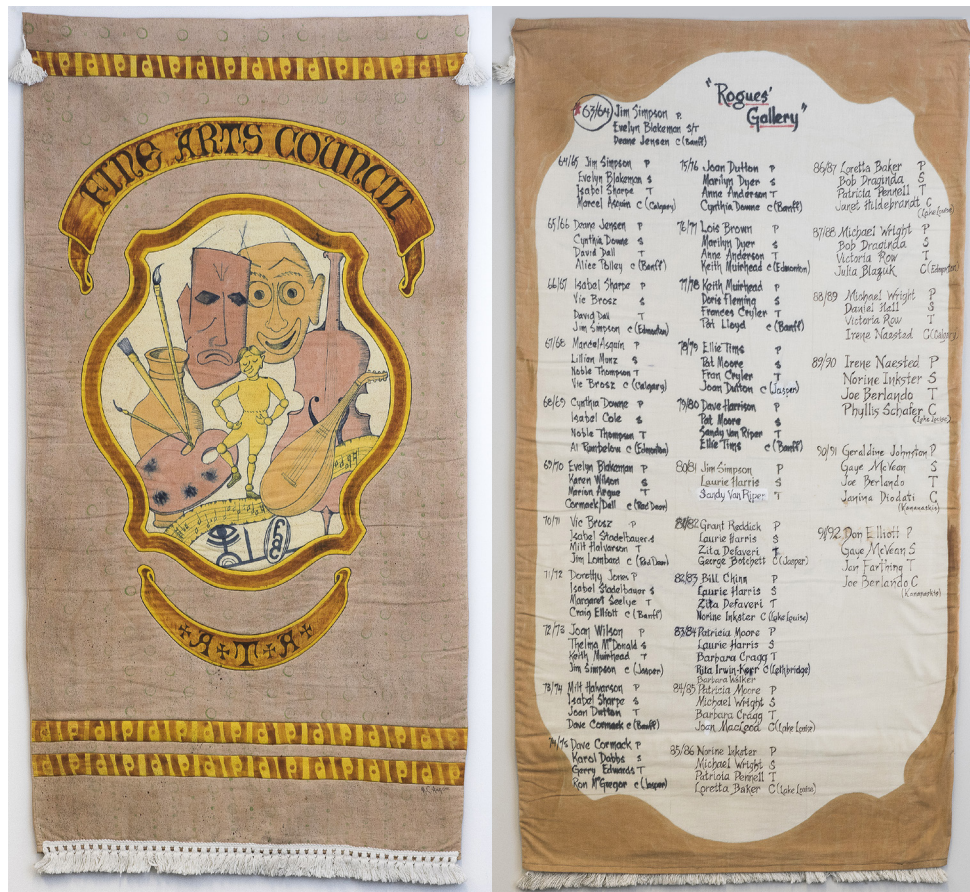 FINE ARTS COUNCIL
A.T.A
"Rogues'
Gallery"
*63/64 Jim Simpson P.
Evelyn Blakeman S/T
Deane Jensen C (Banff)
64/65 Jim Simpson P
Evelyn Blakeman S
Isabel Sharpe T
Marcel Asquin C (Calgary)
65/66 Deane Jensen P
Cynthia Downe S
David Dall T
Alice Polley C (Banff)
66/67 Isabel Sharpe P
Vic Brosz S
David Dall T
Jim Simpson C (Edmonton)
67/68 Marcel Asquin P
Lillian Monz S
Noble Thompson T
Vic Brosz C (Calgary)
68/69 Cynthia Downe P
Isabel Cole S
Noble Thompson T
Al Rumbelow C (Edmonton)
69/70 Evelyn Blakeman P
Karen Wilson S
Marion Argue T
Cormack/Dall C (Red Deer)
70/71 Vic Brosz P
Isabel Stadelbauer S
Milt Halvarson T
Jim Lombard C (Red Deer)
71/72 Dorothy Jones P
Isabel Stadelbauer S
Margaret Seelye T
Craig Elliott C (Banff)
72/73 Joan Wilson P
Thelma McDonald S
Keith Muirhead T
Jim Simpson C (Jasper)
73/74 Milt Halvarson P
Isabel Sharpe S
Joan Dutton T
Dave Cormack C (Banff)
74/75 Dave Cormack P
Karol Dabbs S
Gerry Edwards T
Ron McGregor C (Jasper)
75/76 Joan Dutton P
Marilyn Dyer S
Anne Anderson T
Cynthia Downe C (Banff)
76/77 Lois Brown P
Marilyn Dyer S
Anne Anderson T
Keith Muirhead C (Edmonton)
77/78 Keith Muirhead P
Doris Fleming S
Frances Cryler T
Pat Lloyd C (Banff)
78/79 Ellie Tims P
Pat Moore S
Fran Cryler T
Joan Dutton C (Jasper)
79/80 Dave Harrison P
Pat Moore S
Sandy Van Riper T
Ellie Tims C (Banff)
80/81 Jim Simpson P
Laurie Harris S
Sandy Van Riper T
81/82 Grant Reddick P
Laurie Harris S
Zita Defaveri T
George Botchett C (Jasper)
82/83 Bill Chinn P
Laurie Harris S
Zita Defaveri T
Norine Inkster C (Lake Louise)
83/84 Patricia Moore P
Laurie Harris S
Barbara Cragg T
Rita Irwin-Keer C (Lethbridge)
Barbara Walker
84/85 Patricia Moore P
Michael Wright S
Barbara Cragg T
Joan Macleod C (Lake Louise)
85/86 Norine Inkster P
Michael Wright S
Patricia Pennell T
Loretta Baker C (Lake Louise)
86/87 Loretta Baker P
Bob Draginda S
Patricia Pennell T
Janet Hildebrandt C
(Lake Louise)
87/88 Michael Wright P
Bob Draginda S
Victoria Row T
Julia Blazuk C (Edmonton)
88/89 Michael Wright P
Daniel Hall S
Victoria Row T
Irene Naested C (Calgary)
89/90 Irene Naested P
Norine Inkster S
Joe Berlando T
Phyllis Schafer C
(Lake Louise)
90/91 Geraldine Johnston P
Gaye McVean S
Joe Berlando T
Janina Diodati C
(Kananaskis)
91/92 Don Elliott P
Gaye McVean S
Jan Farthing T
Joe Berlando C
(Kananaskis)